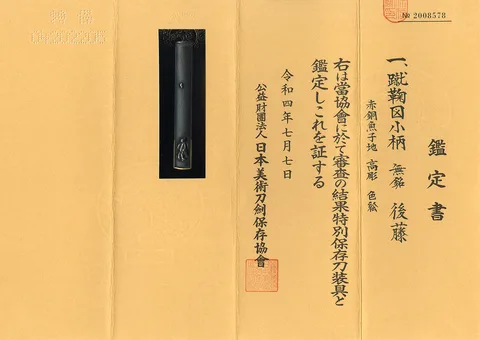 № 2008578
鑑定書
一、蹴鞠図小柄 無銘 後藤
赤銅魚子地 高彫 色絵
右は當協會に於て審査の結果特別保存刀装具と
鑑定しこれを証する
令和四年七月七日
公益財團法人 日本美術刀劍保存協會